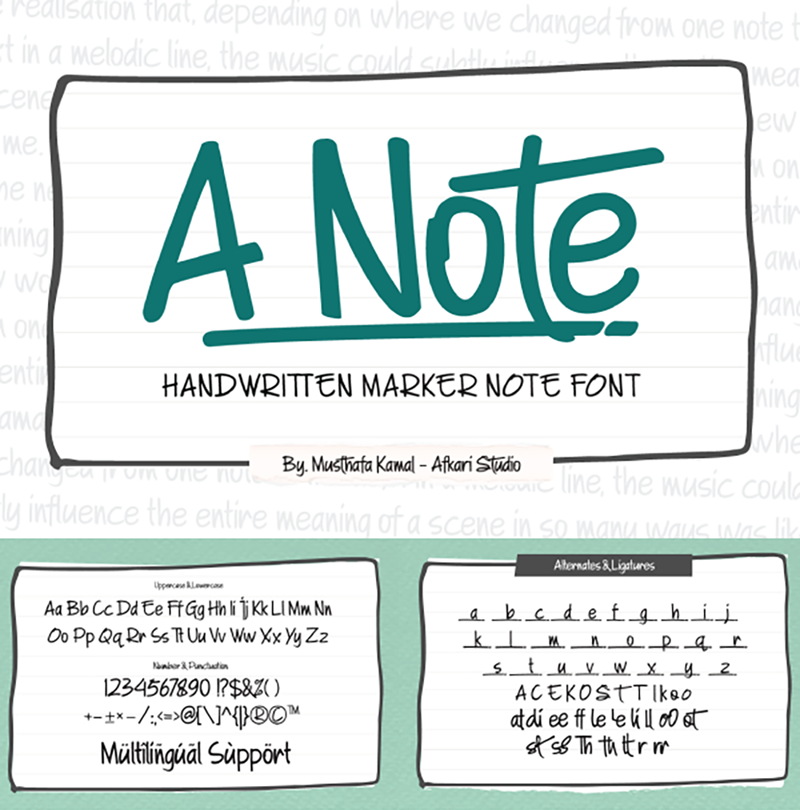 realisation that, depending on where we changed from one note t
t in a melodic line, the music could subtly influence
cene
me.
A Note
HANDWRITTEN MARKER NOTE FONT
By. Musthafa Kamal - Afkari Studio
changed from one note to melodic line, the music could
ly influence the entire meaning of a scene in so many ways was lik
Uppercase & Lowercase
Aa Bb Cc Dd Ee Ff Gg Hh Ii Jj Kk Ll Mm Nn
Oo Pp Qq Rr Ss Tt Uu Vv Ww Xx Yy Zz
Number & Punctuation
1234567890 !?$&%( )
+-±×-/:,<=>@[\]^{|}®©™
Mültilíngúál Sùppört
Alternates & Ligatures
a b c d e f g h i j
k l m n o p q r
s t u v w x y z
A C E K O S T T l k o o
at di ee ff le le li ll oO ot
st ss Th th tt r rr